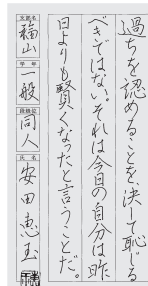 過ちを認めることを決して恥じる
べきではない。それは今日の自分は昨
日よりも賢くなったと言うことだ。
支部名
福山
学年
一般
段級位
同人
氏名
安田恵玉